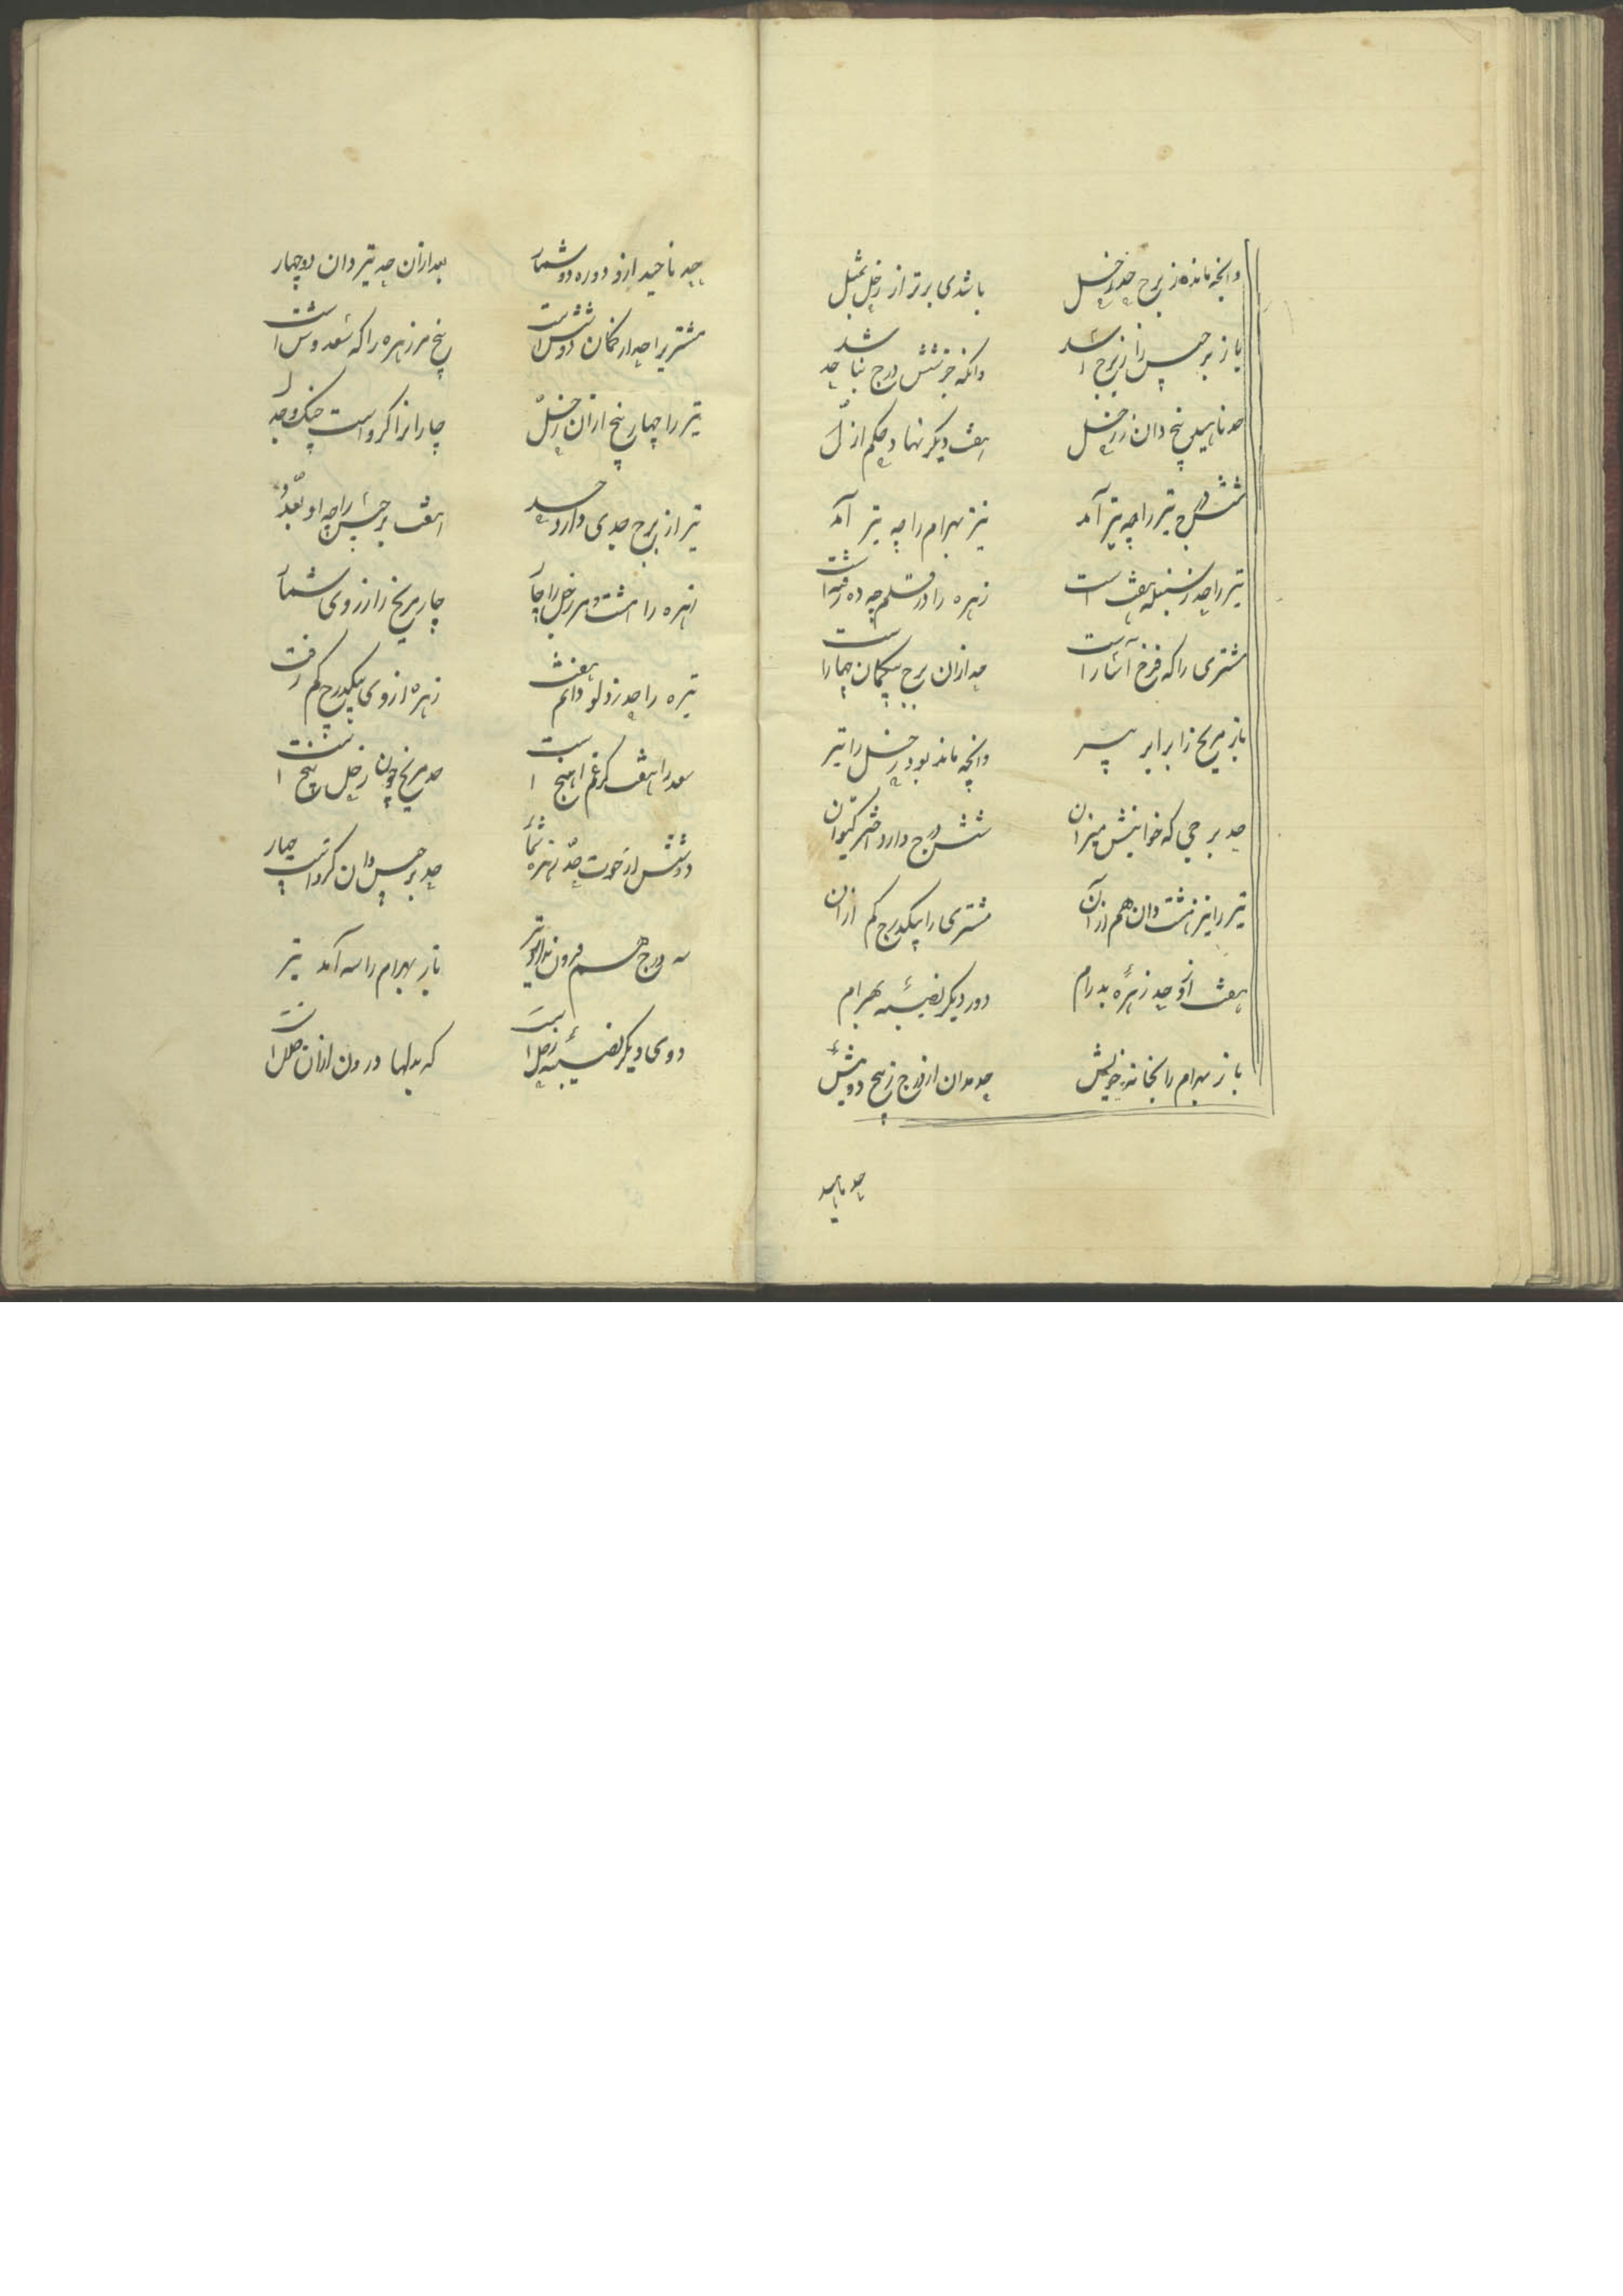 وانچه مانده ز برج حد زحل باشدی برتر از زحل بمثل
باز برجیس را ز برج اسد وانکه جز شش درج نباشد حد
حد ناهید پنج دان ز زحل هفت دیگر نهاد حکم ازل
شش درج تیر را چه تیز آمد نیز بهرام را چه تیر آمد
تیر را حد ز سنبله هفت است زهره را در قلم چه ده رفته است
مشتری را که فرخ آثار است حد ازان برج بیگمان چهار است
باز مریخ را برابر پیر وانچه ماند بود زحل را تیر
حد برجی که خوانیش میزان شش درج دارد اختر کیوان
تیر را نیز هشت دان هم از آن مشتری را یکدرج کم ازان
هفت ازو حد زهره پدرام دو دیگر نصیبه بهرام
باز بهرام را بخانه خویش حد بدان از درج ز پنج دو بیش
حد ناهید
حد ناهید ازو دو ره دو شمار بعد ازان حد تیر دان دو چهار
مشتری را حد از کمان شش و شش است پنج مر زهره را که سعد وش است
تیر را چهار پنج ازان زحل چار انرا که رواست جنک و جدل
تیر از برج جدی دارد حد هفت برجیس را چه او بعدد
زهره را هشت و مر زحل را چار چار مریخ را ز روی شمار
تیره را حد ز دلو دانم هفت زهره از وی یکدرج کم رفت
سعد را هفت کز غم هیج است حد مریخ چون زحل پنج است
دو شش از حوت حد زهره شمار حد برجیس دان کز و است چهار
سه درج هم فزون بداد و تیر باز بهرام را سه آمد تیر
دوی دیگر نصیبه زحل است که بدلها درون ازان خلل است